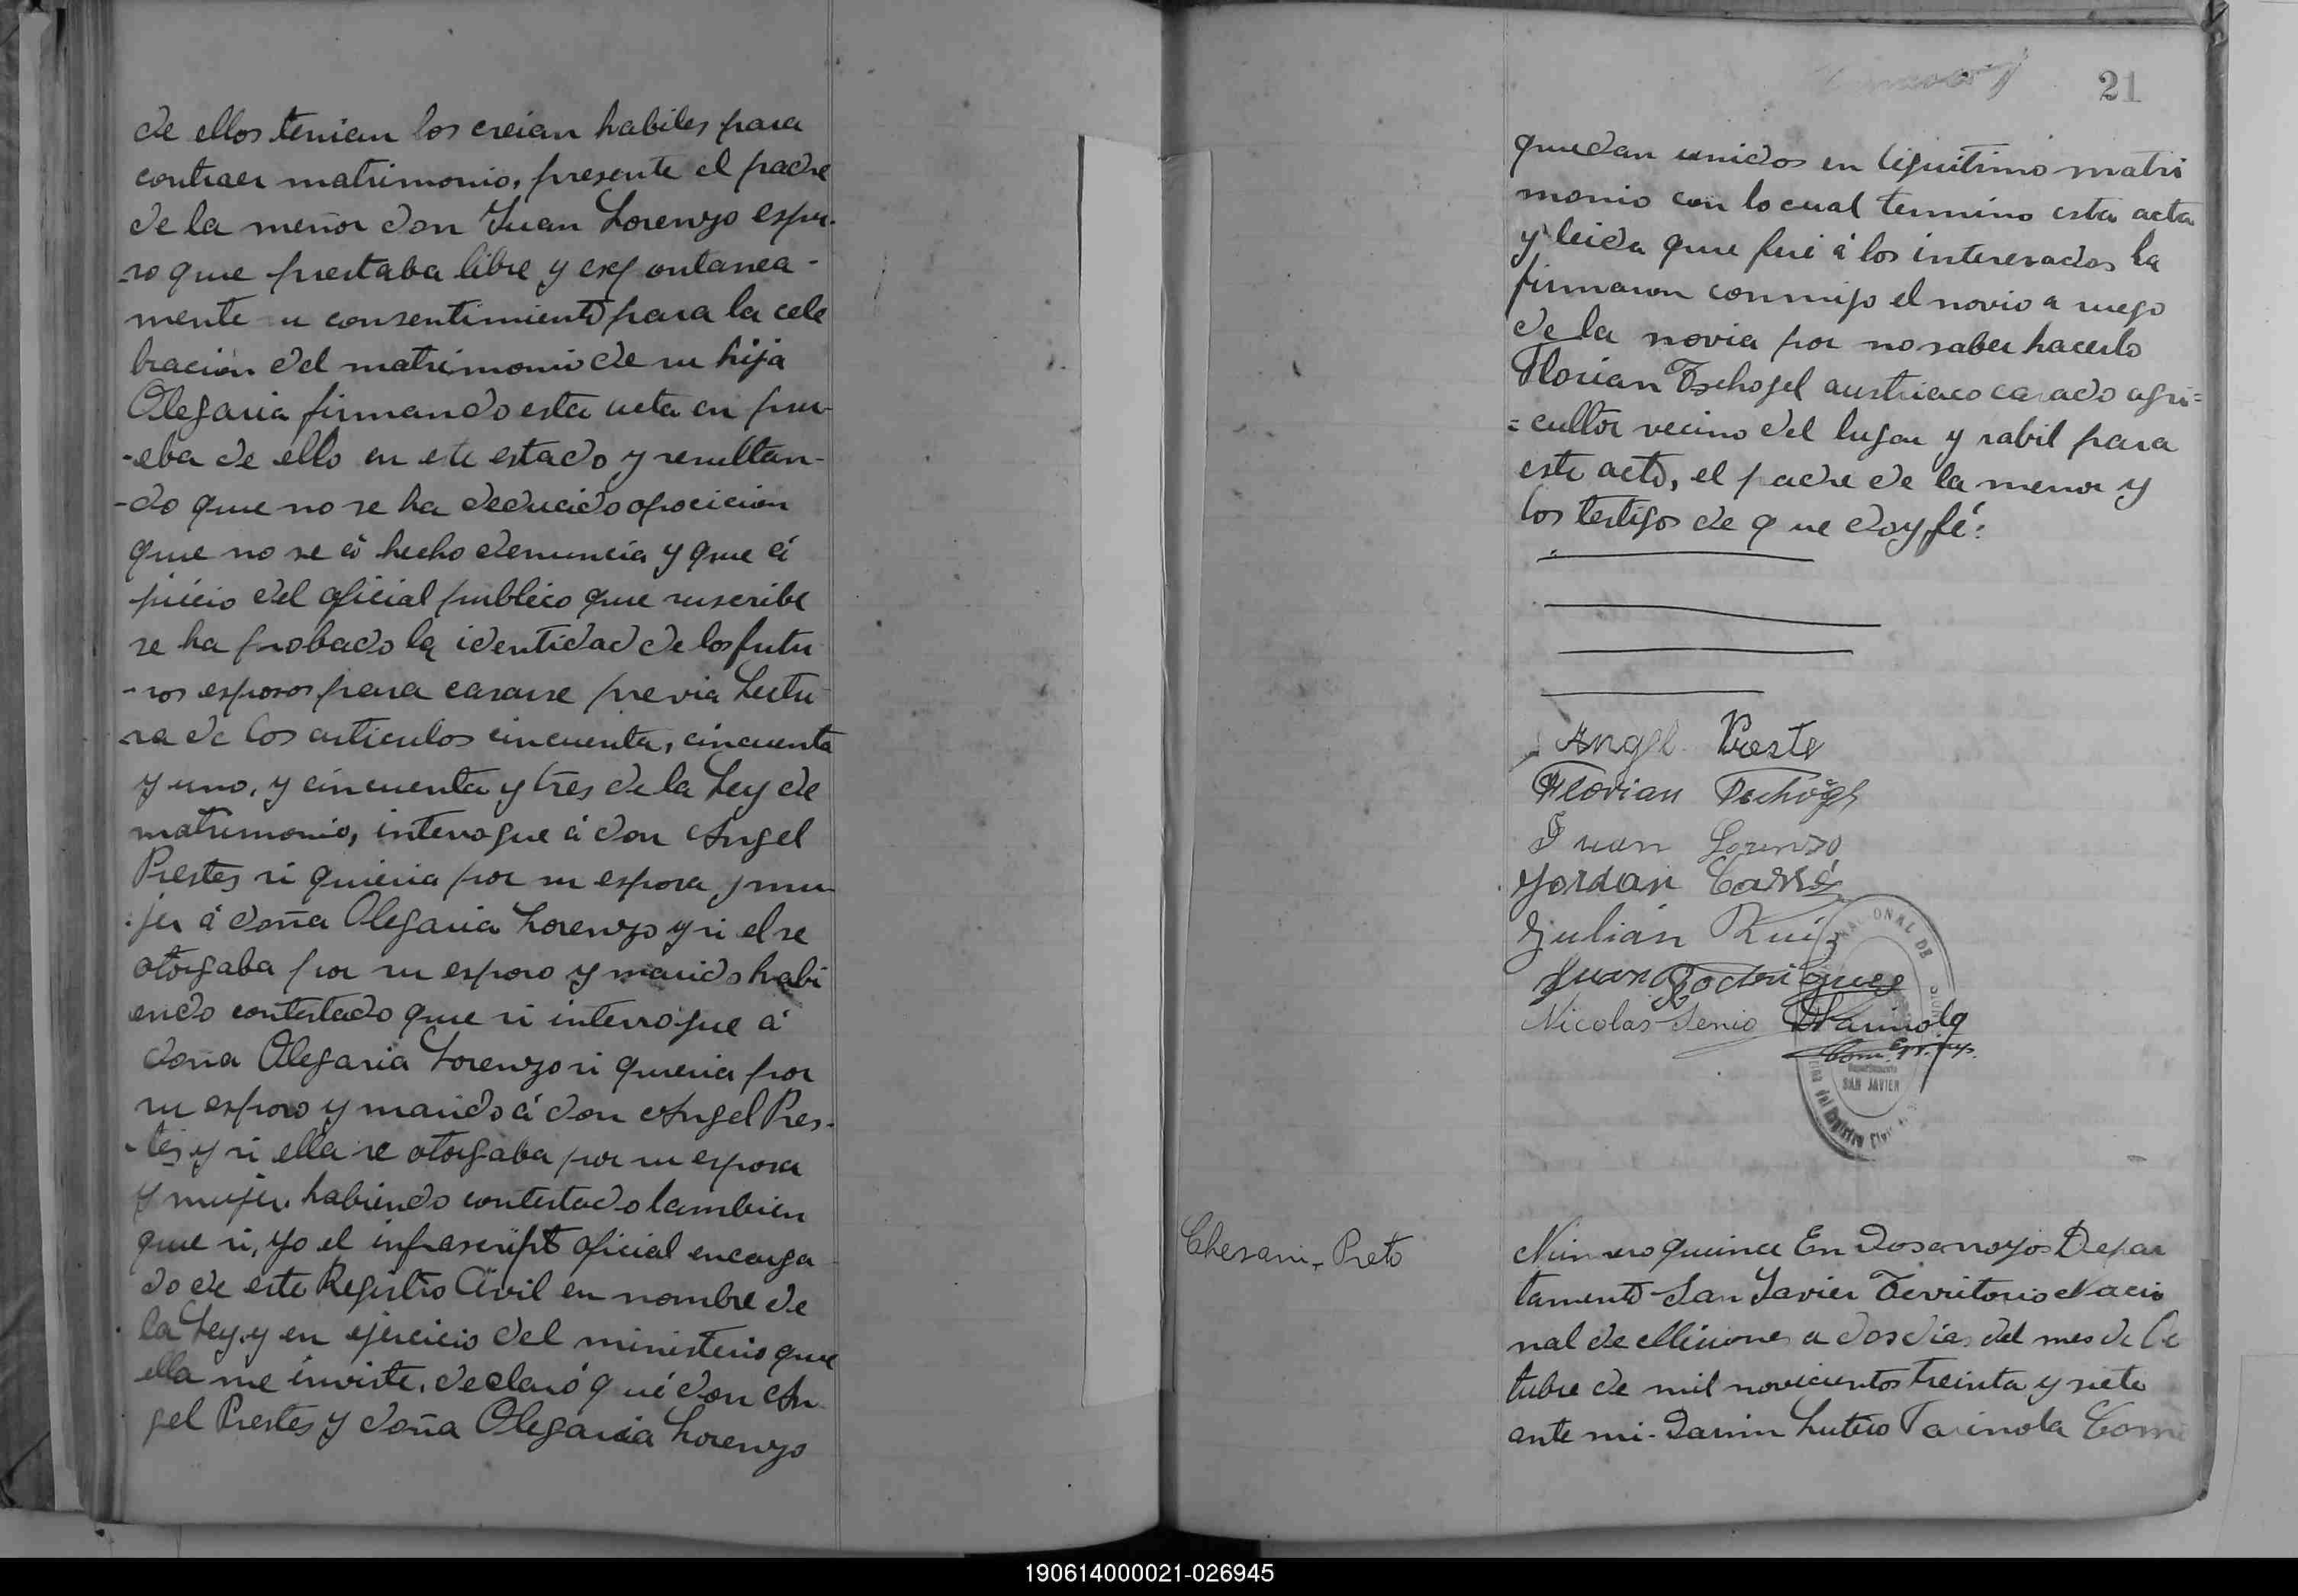 de ellos tenian los creian habiles para
contraer matrimonio, presente el padre
de la menor don Juan Lorenzo expu-
-so que prestaba libre y espontanea-
mente su consentimiento para la cele
bracion del matrimonio de su hija
Olegaria firmando esta acta en pru-
-eba de ello en este estado y resultan-
-do que no se ha deducido oposicion
que no se á hecho denuncia y que á
juicio del oficial publico que suscribe
se ha probado la identidad de los futu
-ros esposos para casarse previa Lectu
ra de los articulos cincuenta, cincuenta
y uno, y cincuenta y tres de la Ley de
matrimonio, interrogue á don Angel
Prestes si queria por su esposa y mu-
jer á doña Olegaria Lorenzo y si el se
otorgaba por su esposo y marido habi
endo contestado que si interrogue á
doña Olegaria Lorenzo si queria por
su esposo y marido á don Angel Pres-
-tes y si ella se otorgaba por su esposa
y mujer habiendo contestado tambien
que si, yo el infrascripto oficial encarga
do de este Registro Civil en nombre de
la Ley y en ejercicio del ministerio que
ella me inviste, declaró qué don An-
gel Prestes y doña Olegaria Lorenzo
21
quedan unidos en leguitimo matri
monio con lo cual termino esta acta
y leida que fué á los interesados la
firmaron conmigo el novio a ruego
de la novia por no saber hacerlo
Florian Tschogel austriaco casado agri=
=cultor vecino del lugar y rabil para
este acto, el padre de la menor y
los testigos de que doy fé:
Angel Preste
Florian Tschögl
Juan Lorenzo
Jordan Carré
Julián Ruiz
Juan Rodrigues
Nicolas Senio D L Parinola
SAN JAVIER
Chesani-Preto
Número quince En Dos arroyos Depar
tamento San Javier Territorio Nacio
nal de Misiones a dos dias del mes de Oc
tubre de mil novicientos treinta y siete
ante mi Darin Lutero Parinola Comi
190614000021-026945